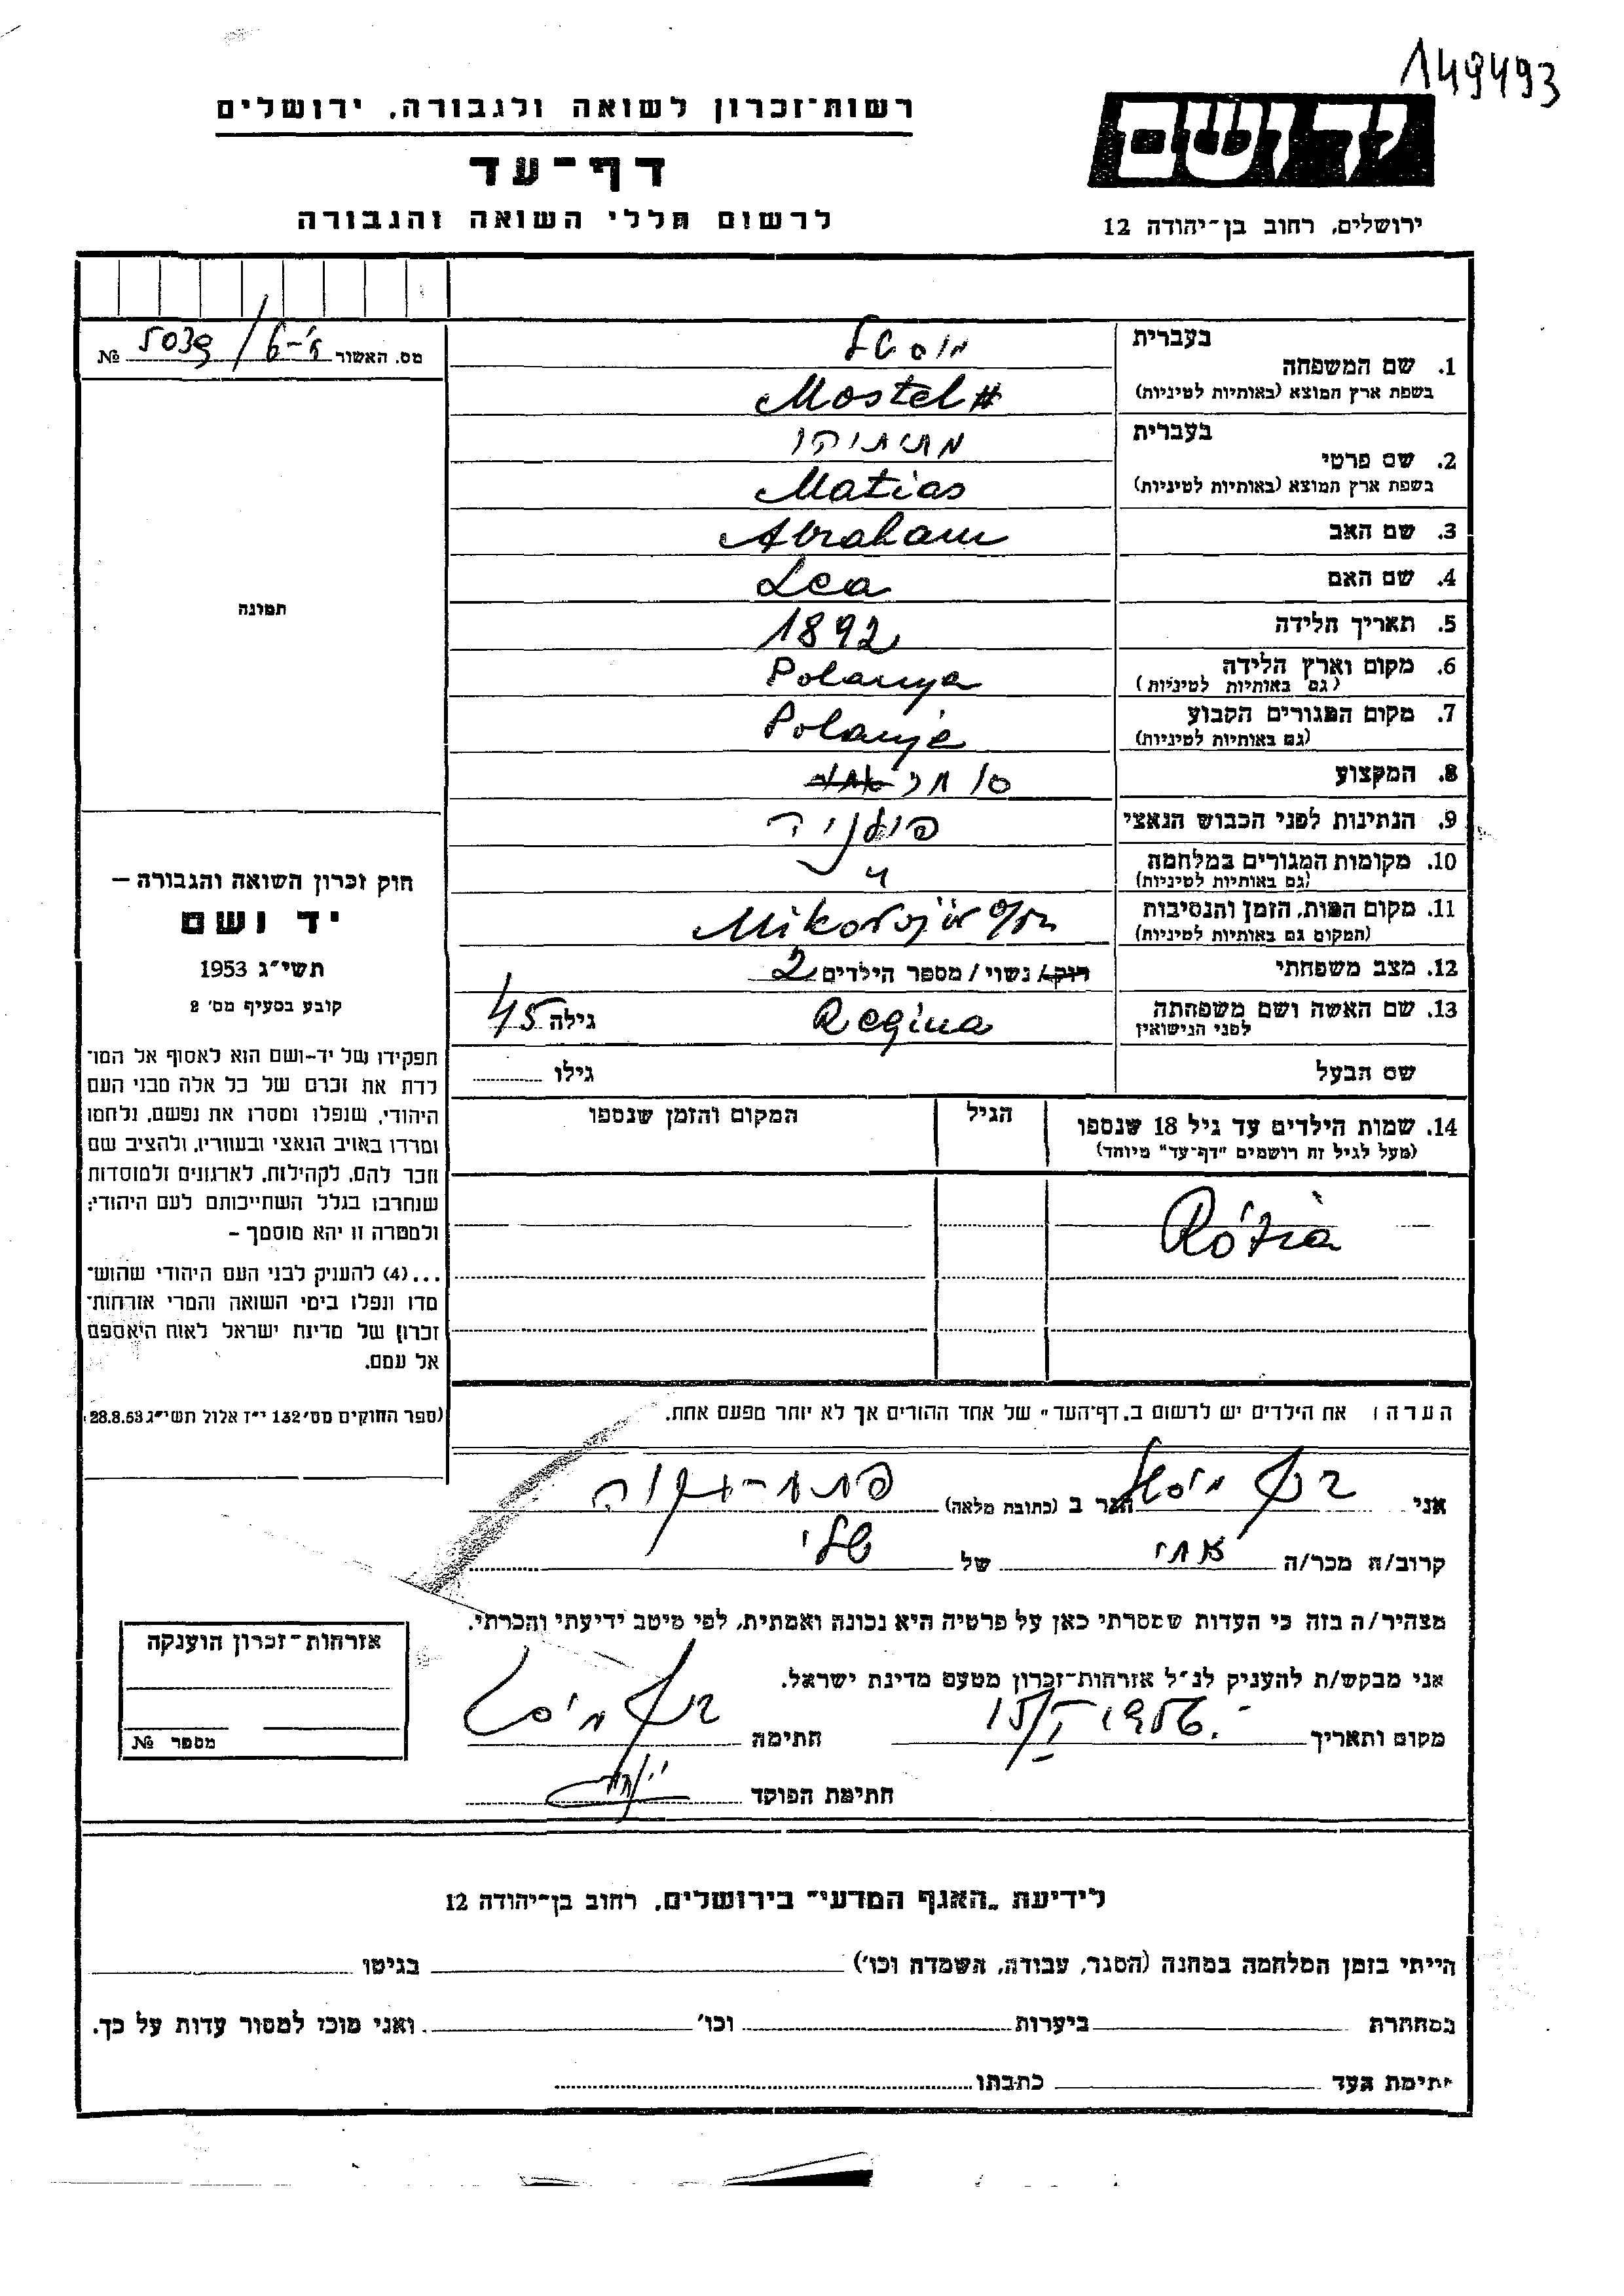 149493
יד ושם
ירושלים, רחוב בן-יהודה 12
רשות-זכרון לשואה ולגבורה, ירושלים
דף-עד
לרשום חללי השואה והגבורה
מס. האשור 5039 / №
1. שם המשפחה
בעברית מוסטל
בשפת ארץ המוצא (באותיות לטיניות) Mostel
2. שם פרטי
בעברית
בשפת ארץ המוצא (באותיות לטיניות) Matias
3. שם האב Abraham
4. שם האם Lea
5. תאריך הלידה 1892
6. מקום וארץ הלידה Polanya
(גם באותיות לטיניות)
7. מקום המגורים הקבוע Polanje
(גם באותיות לטיניות)
8. המקצוע סוחר
9. הנתינות לפני הכבוש הנאצי פולניה
10. מקומות המגורים במלחמה
(גם באותיות לטיניות)
11. מקום המות, הזמן והנסיבות
(המקום גם באותיות לטיניות)
12. מצב משפחתי רוק/ נשוי/ מספר הילדים 2
13. שם האשה ושם משפחתה Regina גילה 45
לפני הנישואין
שם הבעל גילו
14. שמות הילדים עד גיל 18 שנספו הגיל המקום והזמן שנספו
(מעל לגיל זה רושמים "דף-עד" מיוחד)
תמונה
חוק זכרון השואה והגבורה –
יד ושם
תשי"ג 1953
קובע בסעיף מס' 2
תפקידו של יד-ושם הוא לאסוף אל המו־
לדת את זכרם של כל אלה מבני העם
היהודי, שנפלו ומסרו את נפשם, נלחמו
ומרדו באויב הנאצי ובעוזריו, ולהציב שם
וזכר להם, לקהילות, לארגונים ולמוסדות
שנחרבו בגלל השתייכותם לעם היהודי;
ולמטרה זו יהא מוסמך –
...(4) להעניק לבני העם היהודי שהוש־
מדו ונפלו בימי השואה והמרי אזרחות־
זכרון של מדינת ישראל לאות היאספם
אל עמם.
(ספר החוקים מס' 132 י"ז אלול תשי"ג 28.8.53)
הערה: את הילדים יש לרשום ב"דף-העד" של אחד ההורים אך לא יותר מפעם אחת.
אני הגר ב (כתובת מלאה) פתח-תקוה
קרוב/ה מכר/ה אחי של שלי
מצהיר/ה בזה כי העדות שמסרתי כאן על פרטיה היא נכונה ואמתית, לפי מיטב ידיעתי והכרתי.
אני מבקש/ת להעניק לנ"ל אזרחות-זכרון מטעם מדינת ישראל.
מקום ותאריך 15/I 1956. חתימה
חתימת הפוקד
אזרחות-זכרון הוענקה
מספר №
לידיעת "האגף המדעי" בירושלים, רחוב בן-יהודה 12
הייתי בזמן המלחמה במחנה (הסגר, עבודה, השמדה וכו') בגיטו
במחתרת ביערות וכו' ואני מוכן למסור עדות על כך.
חתימת העד כתבתו